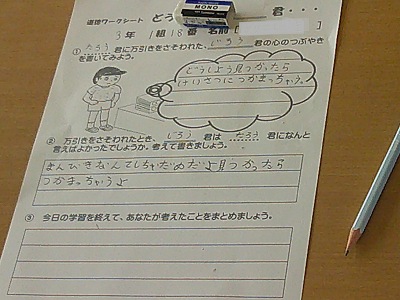 道徳ワークシート
君・・・
MONO
3年 1組 18番 名前
① たろう 君に万引きをさそわれた、じろう 君の心のつぶやき
を書いてみよう。
どうしよう見つかったら
けいさつにつかまっちゃう。
② 万引きをさそわれたとき、じろう 君は たろう 君になんと
言えばよかったでしょうか。考えて書きましょう。
まんびきなんてしちゃだめだよ見つかったら
つかまっちゃうよ
③ 今日の学習を終えて、あなたが考えたことをまとめましょう。